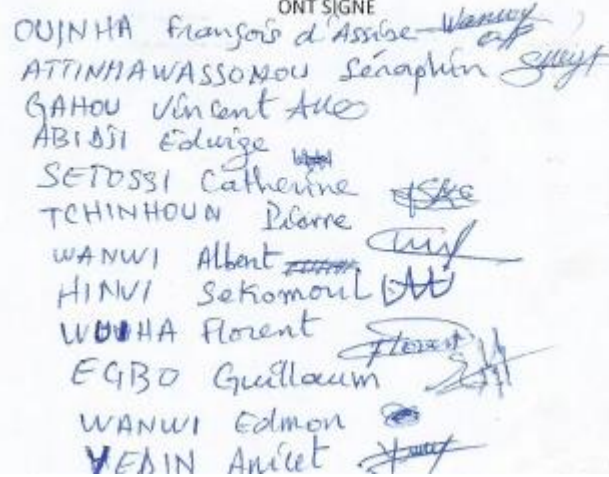 ONT SIGNE
OUINHA François d'Assise
ATTINHAWASSONOU Séraphin
GAHOU Vincent
ABIDJI Edwige
SETOSSI Catherine
TCHINHOUN Pierre
WANWI Albert
HINVI Sekomoul
Florent
EGBO Guillaum
WANWI Edmon
Anicet